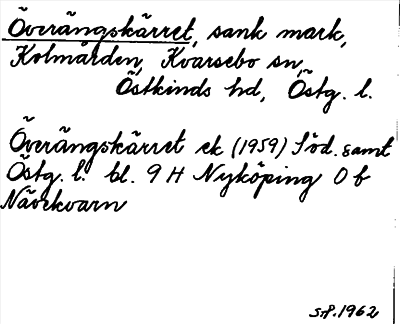 Överängskärret, sank mark,
Kolmården, Kvarsebo sn,
Östkinds hd, Östg. l.
Överängskärret ek (1959) Söd. samt
Östg. l. bl. 9 H Nyköping 0 b
Nävekvarn
1962